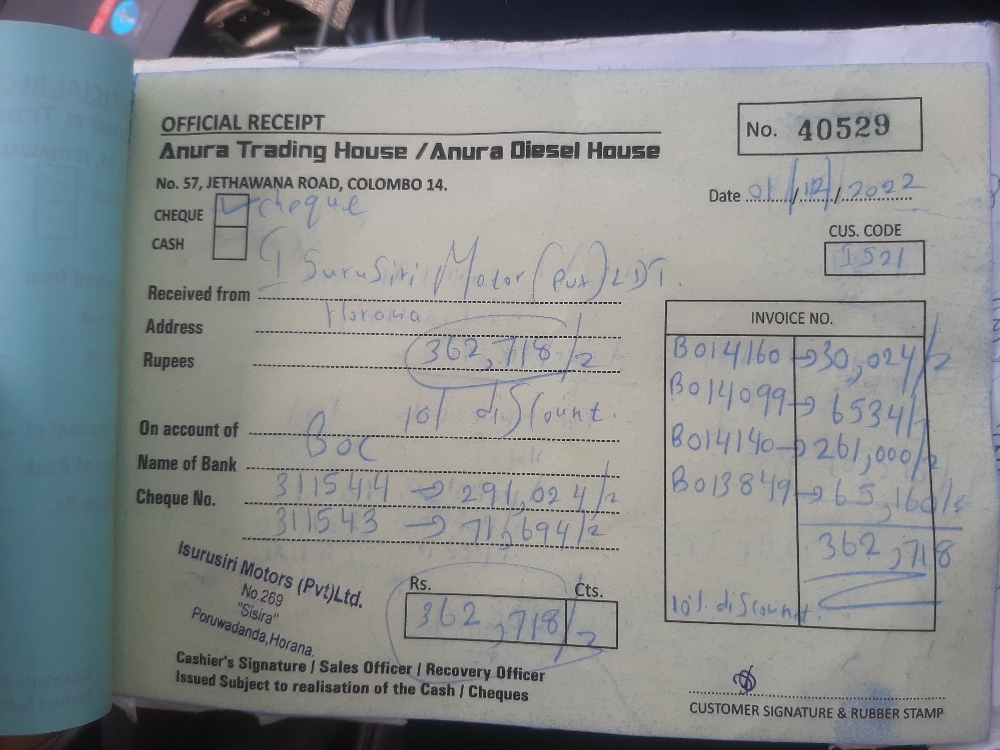 OFFICIAL RECEIPT
Anura Trading House / Anura Diesel House
No. 57, JETHAWANA ROAD, COLOMBO 14.
No. 40529
Date 01/12/2022
CHEQUE cheque
CASH
CUS. CODE
IS21
Received from ISuruSiri Motor (Pvt) LDT.
Address Horana
Rupees 362,718/2
10% diScount.
On account of
Name of Bank BoC
Cheque No. 311544 → 291,024/2
311543 → 71,694/2
INVOICE NO.
B014160 → 30,024/2
B014099 → 6534/
B014140 → 261,000/2
B013849 → 65,160/
362,718
10%. diScount.
Isurusiri Motors (Pvt)Ltd.
No.269
"Sisira"
Poruwadanda,Horana.
Rs. Cts.
362,718/2
Cashier's Signature / Sales Officer / Recovery Officer
Issued Subject to realisation of the Cash / Cheques
CUSTOMER SIGNATURE & RUBBER STAMP